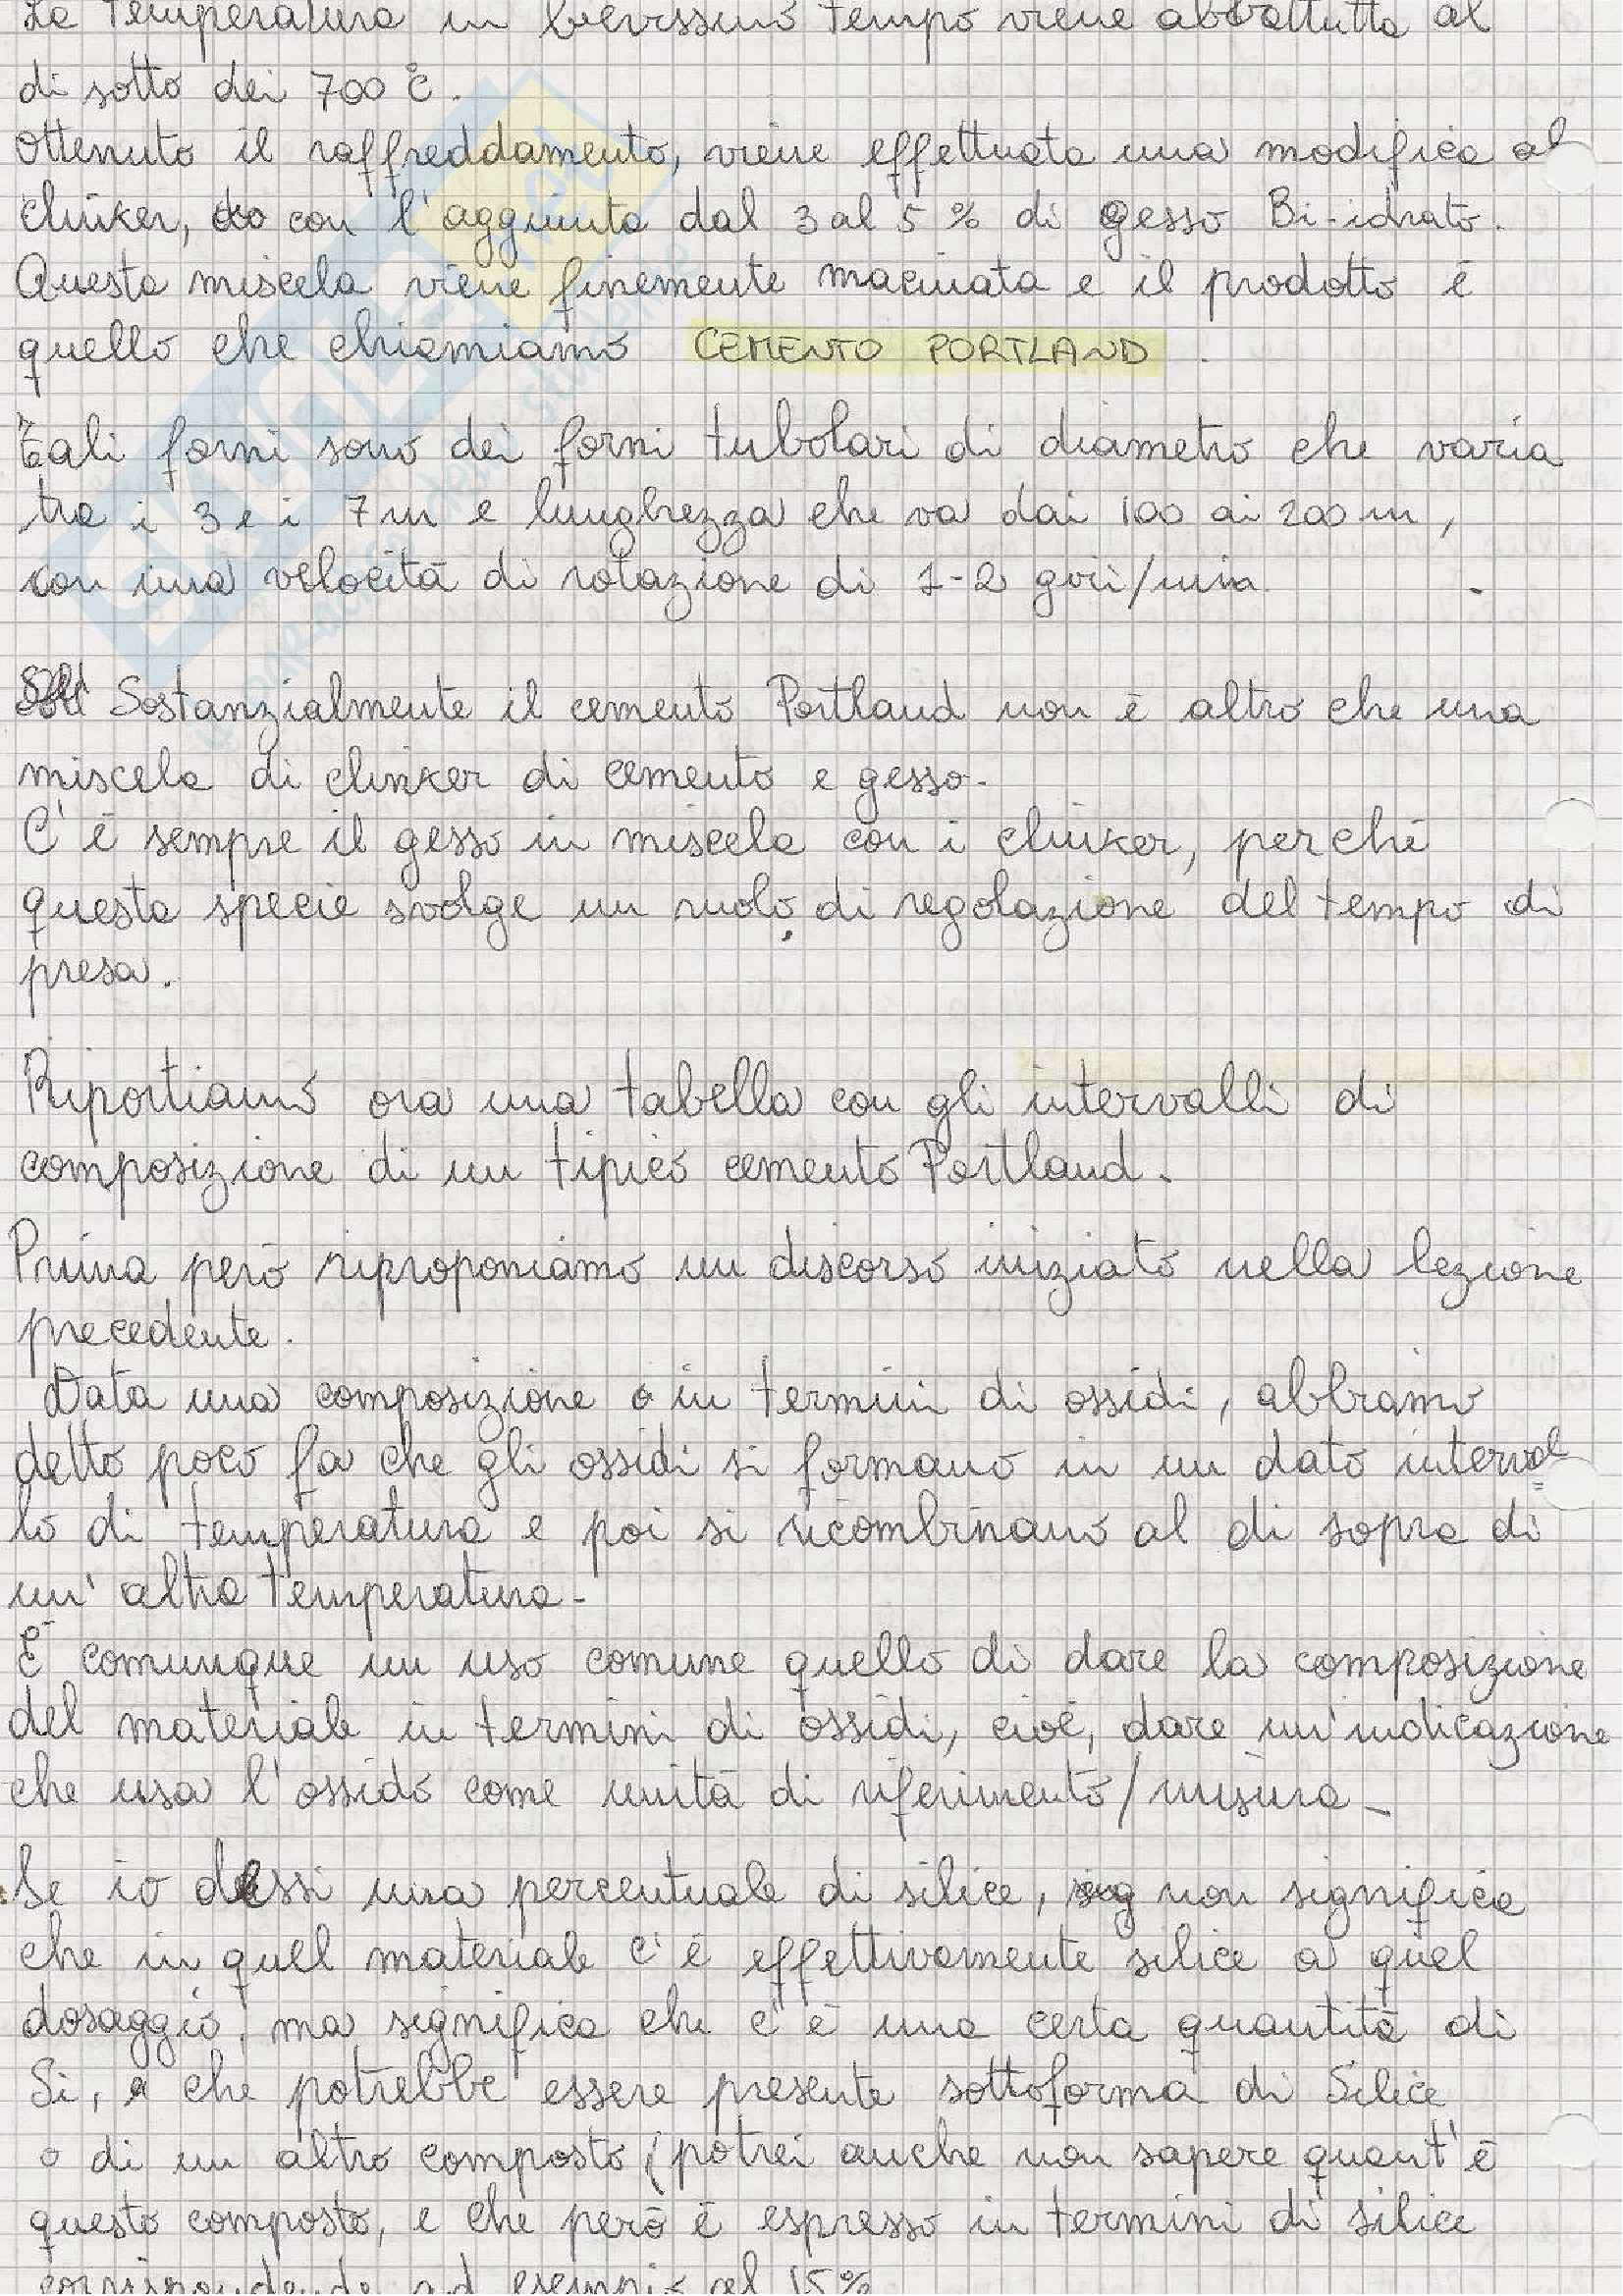 La Temperatura in brevissimo tempo viene abbattuta al
di sotto dei 700 °C.
Ottenuto il raffreddamento, viene effettuata una modifica al
clinker, con l'aggiunta dal 3 al 5 % di gesso Bi-idrato.
Questa miscela viene finemente macinata e il prodotto è
quello che chiamiamo CEMENTO PORTLAND.
Tali forni sono dei forni tubolari di diametro che varia
tra i 3 e i 7 m e lunghezza che va dai 100 ai 200 m,
con una velocità di rotazione di 1-2 giri/min.
Sostanzialmente il cemento Portland non è altro che una
miscela di clinker di cemento e gesso.
C'è sempre il gesso in miscela con i clinker, perché
questa specie svolge un ruolo di regolazione del tempo di
presa.
Riportiamo ora una tabella con gli intervalli di
composizione di un tipico cemento Portland.
Prima però riproponiamo un discorso iniziato nella lezione
precedente.
Data una composizione in termini di ossidi, abbiamo
detto poco fa che gli ossidi si formano in un dato interval
lo di temperatura e poi si ricombinano al di sopra di
un'altra temperatura.
È comunque un uso comune quello di dare la composizione
del materiale in termini di ossidi, cioè, dare un'indicazione
che usa l'ossido come unità di riferimento/misura.
Se io dessi una percentuale di silice, non significa
che in quel materiale c'è effettivamente silice a quel
dosaggio, ma significa che c'è una certa quantità di
Si, che potrebbe essere presente sottoforma di Silice
o di un altro composto (potrei anche non sapere quant'è
questo composto, e che però è espresso in termini di silice
corrispondente ad esempio al 15%